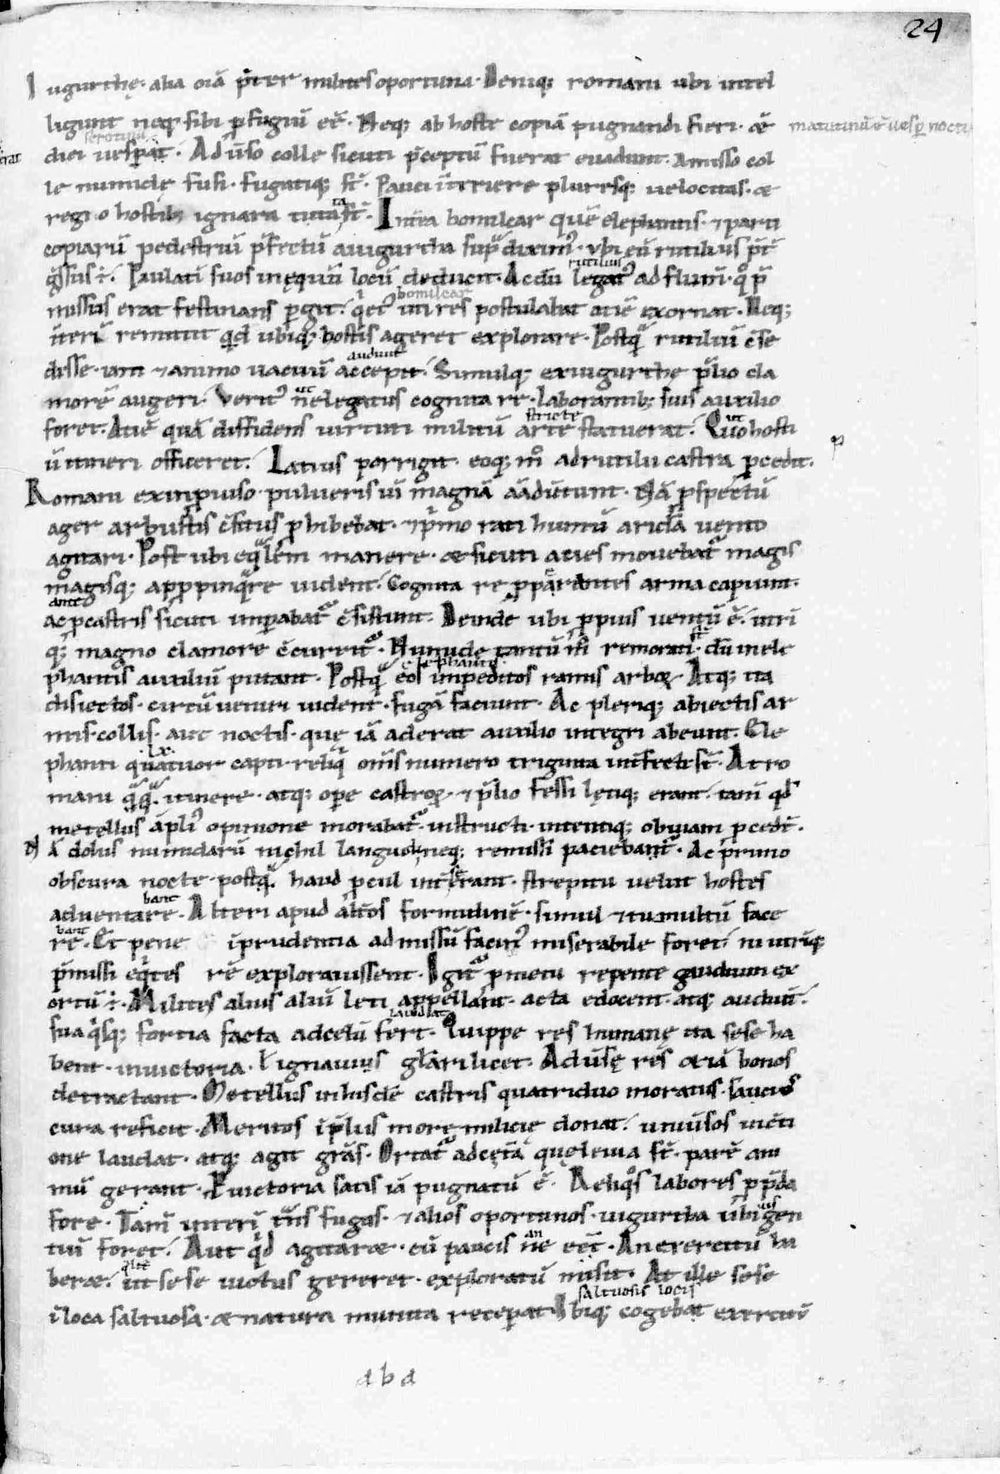 24
Iugurthę. alia oiā p̄ter milites oportuna. Deniq; romani ubi intel
ligunt neq; sibi p̄fugiū eē. Neq; ab hoste copiā pugnandi fieri. &
matutinū ē uesp nocti
diei uesp̄at. Aduso colle sicuti p̄ceptū fuerat euadunt. Amisso col
le numide fusi. fugatiq; st̄. Pauci īteriere pluresq; uelocitas. &
regio hostib; ignara tutata st̄. Intea bomilcar quē elephantis. & parti
copiarū pedestriū p̄fectū a iugurtha sup̄ diximus. ubi eū rutilius p̄t
gssus ē. Paulatī suos in ęquū locū deducit. Ac dū legatus ad flumē. q̊ p̄
rutilius
missus erat festinans pgit. q̄etus uti res postulabat aciē exornat. Neq;
bomilcar
īterī remittit qd ubiq; hostis ageret explorare. Postq̄ rutiliū c̄se
disse. iam & animo uacuū accepit. Simulq; ex iugurthe p̄lio cla
audiuit
morē augeri. Veritus ne legatus cognita re. laborantib; suis auxilio
foret. Aciē quā diffidens uirtuti militū arte statuerat. Quo hosti
stricte
ū itineri officeret. Latius porrigit. eoq; m̊ ad rutilii castra pcedit.
Romani ex inprouiso pulueris uī magnā aīaduertunt. Nā pspectū
ager arbustis c̄situs phibebat. & p̄mo rati humū aridā uento
agitari. Post ubi eq̄lē manere. & sicuti acies mouebat magis
magisq; appinq̄re uident. Cognita re pparantes arma capiunt.
ante
ac p castris sicuti impabat c̄sistunt. Deinde ubi ppius uentū ē. utri
q; magno clamore c̄currit. Numide tantū m̊ remorati. dū in ele
elephantos
phantis auxiliū putant. Postq̄ eos impeditos ramis arboꝝ. Atq; ita
disiectos. circūueniri uident. fugā faciunt. Ac pleriq; abiectis ar
mis. collis. aut noctis. que iā aderat auxilio integri abeunt. Ele
.lx.
phanti quatuor capti. reliq̄ om̄s numero triginta int̄fecti st̄. At ro
mani q̄q̄ itinere. atq; ope castroꝝ. & p̄lio fessi lętiq; erant. tam̄ qd
metellus ampli opinione morabat. instructi. intentiq; obuiam pcedt̄.
Nā dolus numidarū nichil languidi neq; remissi paciebant. Ac primo
obscura nocte. postq̄ haud pcul int̄ se erant. strepitu uelut hostes
bant
aduentare. Alteri apud alt̄os formidinē. simul & tumultū face
bant
re. Et pene īprudentia admissū facin miserabile foret. ni utriq;
p̄missi eq̄tes rē explorauissent. Igit p metu repente gaudium ex
ortū ē. Milites alius aliū leti appellant. acta edocent. atq; audiūt.
laudibus
sua q̄sq; fortia facta ad celū fert. Quippe res humane ita sese ha
bent. in uictoria. l ignauius gl̄ari licet. Aduse res etiā bonos
detractant. Metellus in hisdē castris quatriduo moratus. saucios
cura reficit. Meritos ī p̄lus more milicię donat. uniusos in cti
one laudat. atq; agit grās. Ortat ad cętā quę leuia st̄. parē ani
mū gerant. P uictoria satis iā pugnatū ē. Reliqos labores p p̄da
fore. Tam̄ interī t̄nsfugas. & alios oportunos. iugurtha ubi gen
tiū foret. Aut qd agitaret. cū paucis ne eēt. An exercitū ha
beret. ut sese uictus gereret. exploratū misit. At ille sese
saltuosis locis
ī loca saltuosa. & natura munita receperat. Ibiq; cogebat exercitū
aba